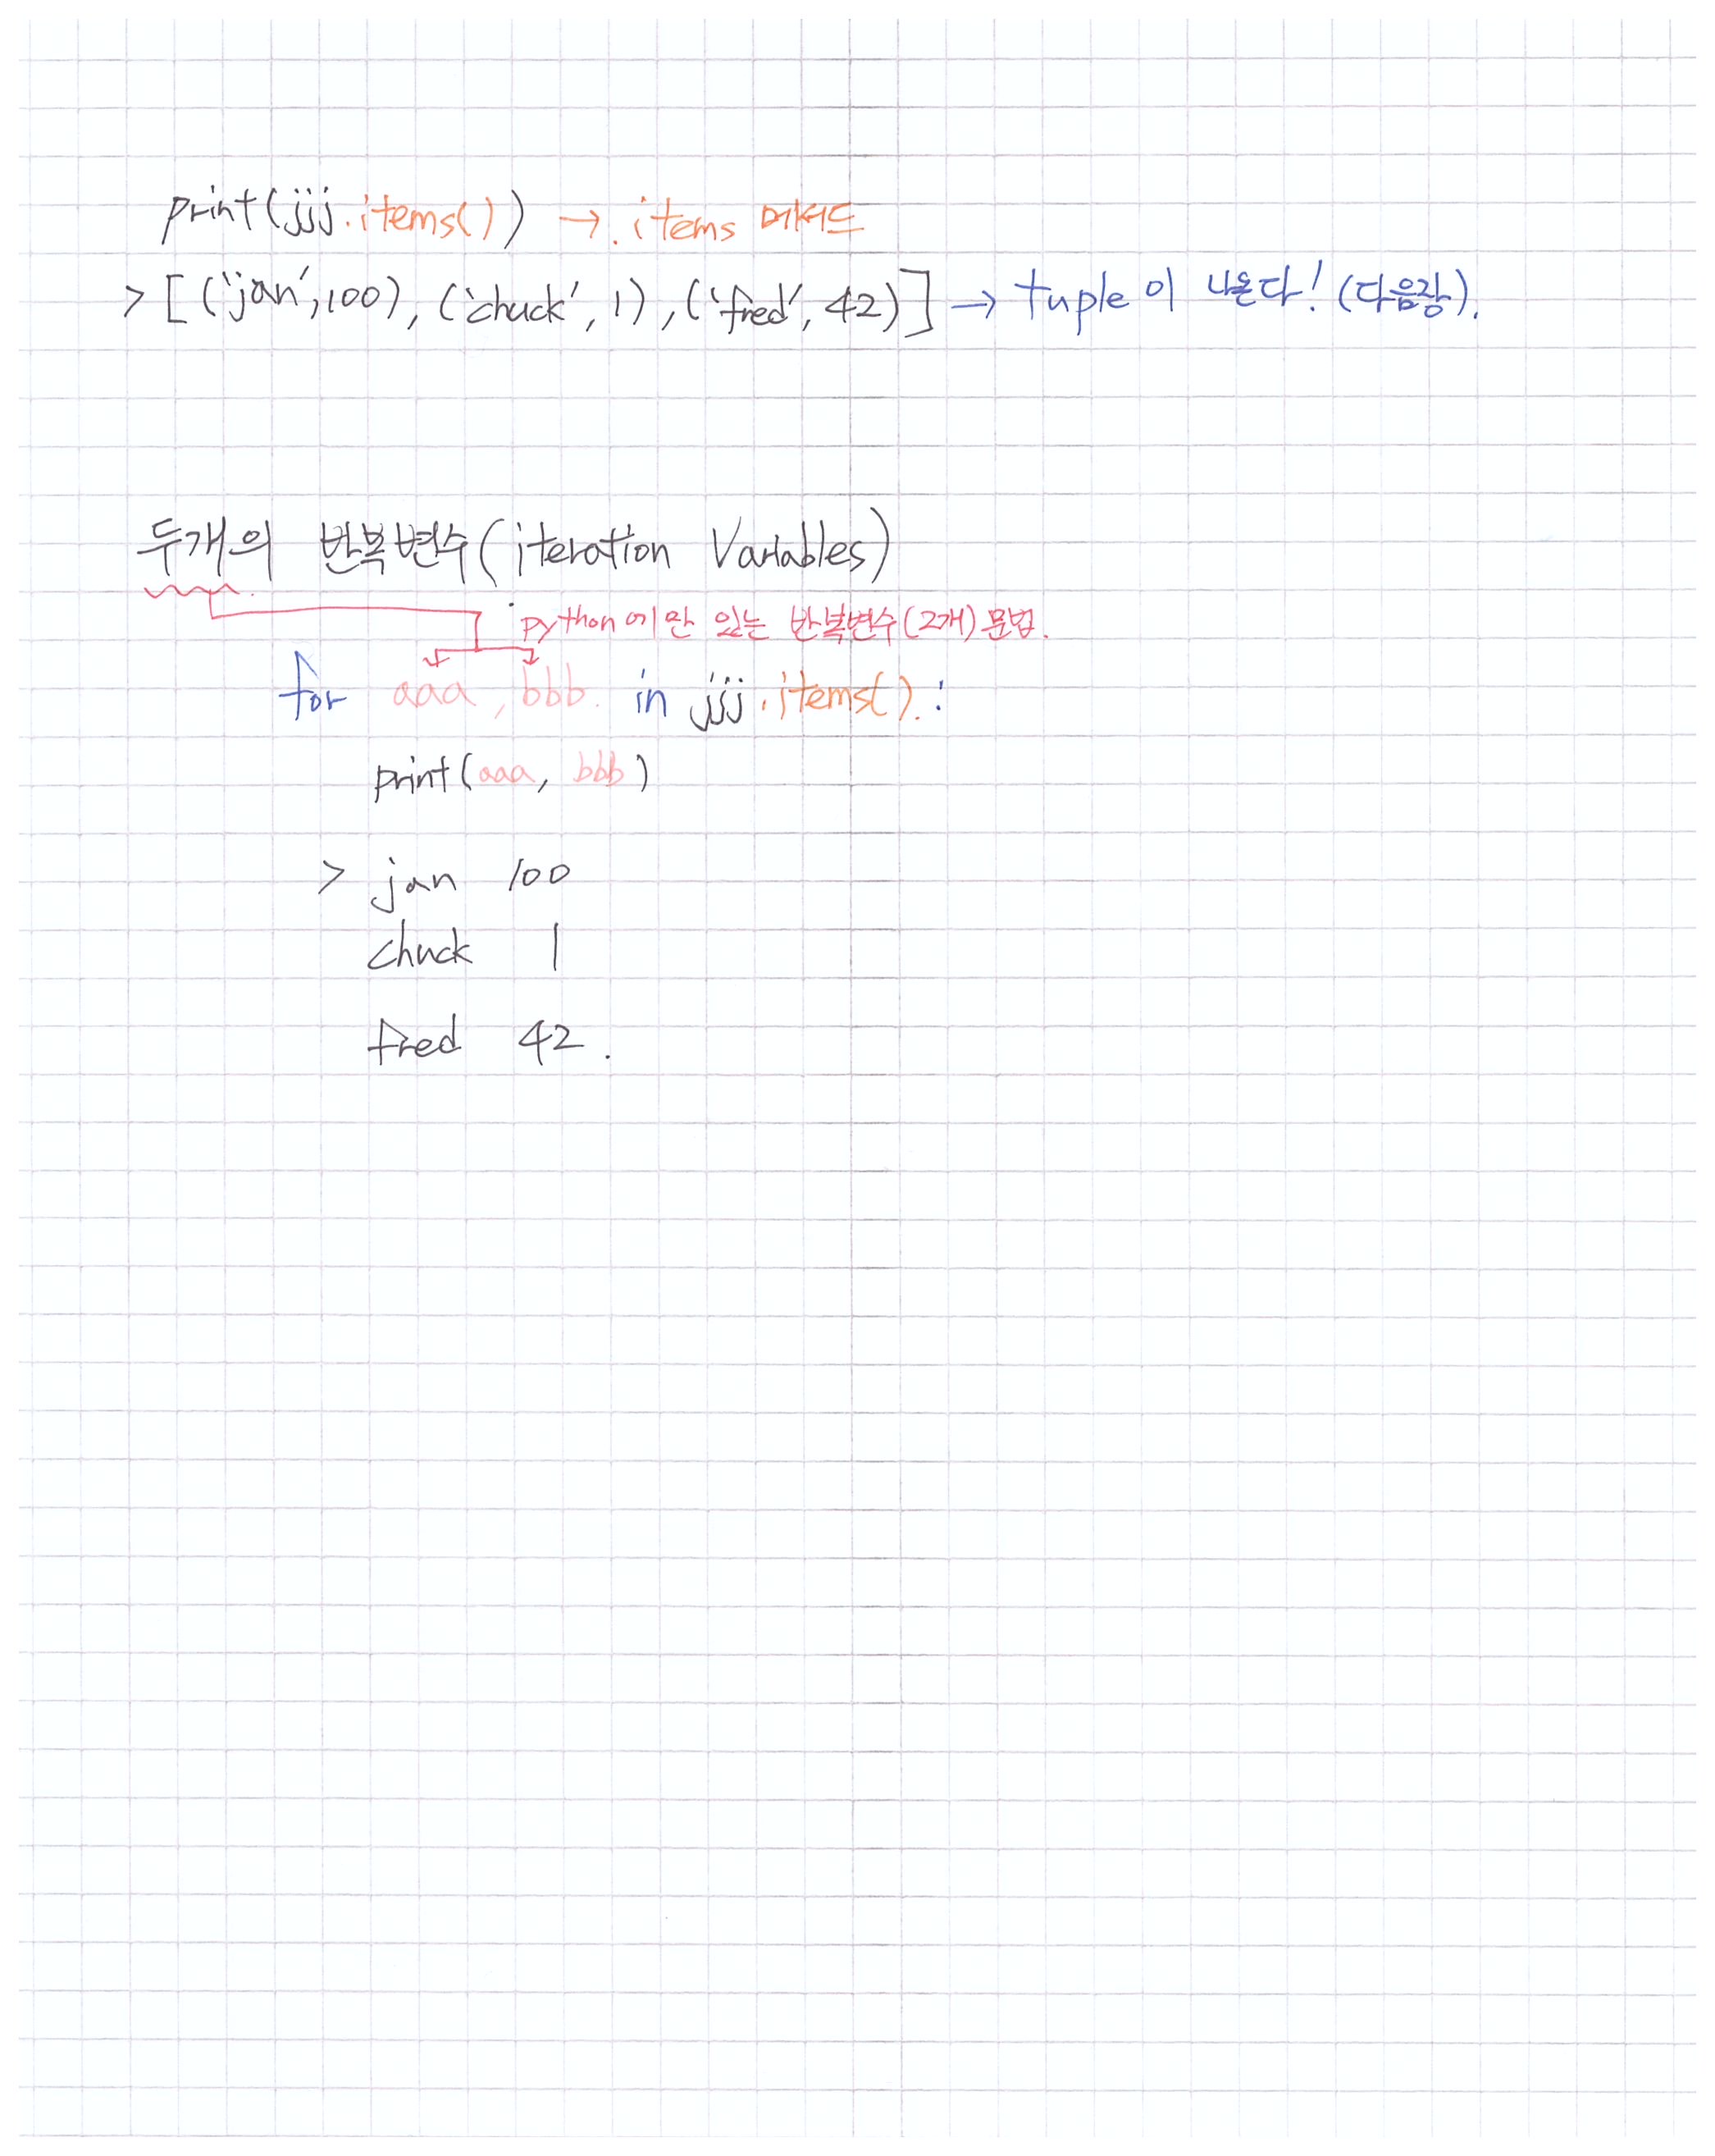 print(jjj.items()) → .items 메서드
> [('jan',100), ('chuck', 1), ('fred', 42)] → tuple이 나온다! (다음장).
두개의 반복변수(iteration Variables)
python에만 있는 반복변수(2개) 문법.
for aaa, bbb. in jjj.items().:
print(aaa, bbb)
> jan 100
chuck 1
fred 42.